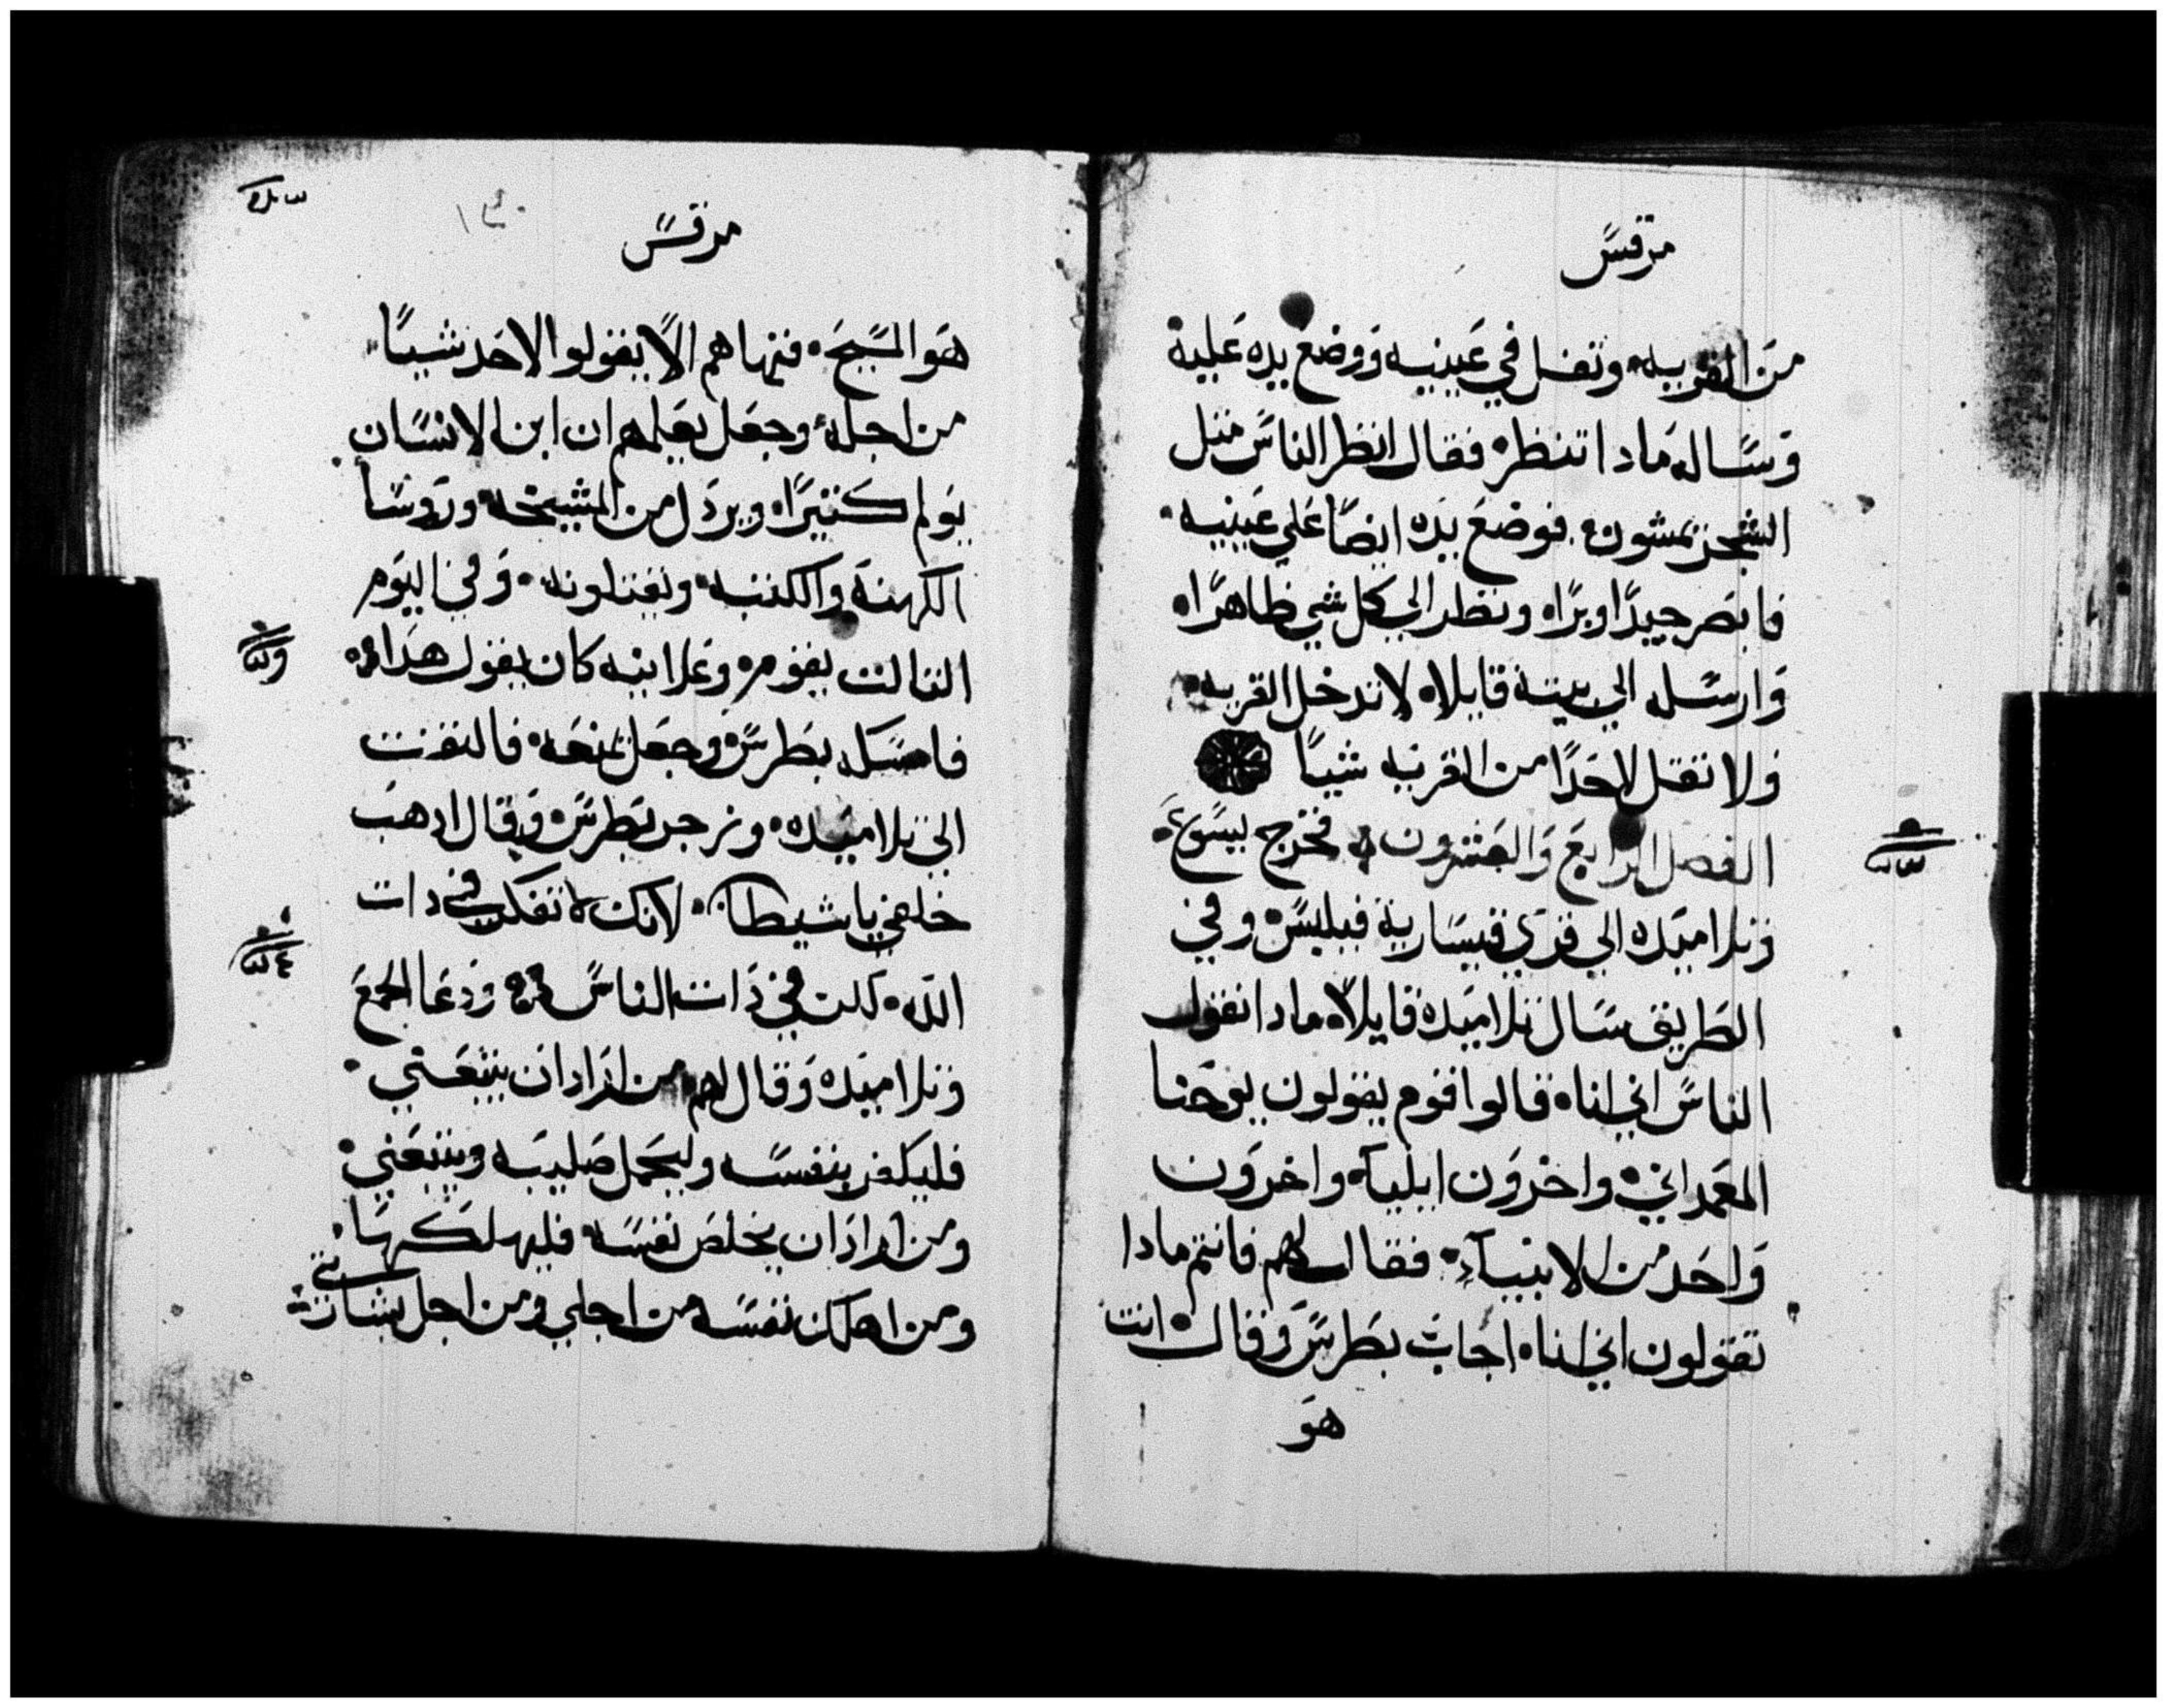 مرقس
من القريه وتفل في عينيه ووضع يده عليه
وساله مادا تنظر فقال انظر الناس مثل
الشجر يمشون فوضع يده ايضا علي عينيه
فابصر جيدا وبرا ونظر الي كل شي ظاهرا
وارسله الي بيته قايلا لا تدخل القريه
ولا تقل لاحدا من القريه شيا
الفصل الرابع والعشرون فخرج يسوع
وتلاميده الي قري قيسارية فيلبس وفي
الطريق سال تلاميده قايلا مادا تقول
الناس اني انا قالوا قوم يقولون يوحنا
المعمداني واخرون ايليا واخرون
واحد من الانبياء فقال لهم فانتم مادا
تقولون اني انا اجاب بطرس وقال انت
هو
مرقس
هو المسيح فنهاهم الا يقولوا لاحد شيا
من اجله وجعل يعلمهم ان ابن الانسان
يولم كثيرا ويردل من المشيخه وروسا
الكهنة والكتبه ويقتلونه وفي اليوم
الثالت يقوم وعلانيه كان يقول هدا
فامسكه بطرس وجعل يمنعه فالتفت
الي تلاميده وزجر بطرس وقال ادهب
خلفي يا شيطان لانك لا تفكر في دات
الله لكن في دات الناس ودعا الجمع
وتلاميده وقال لهم من اراد ان يتبعني
فليكفر بنفسه وليحمل صليبه ويتبعني
ومن اراد ان يخلص نفسه فليهلكها
ومن اهلك نفسه من اجلي ومن اجل بشارتي